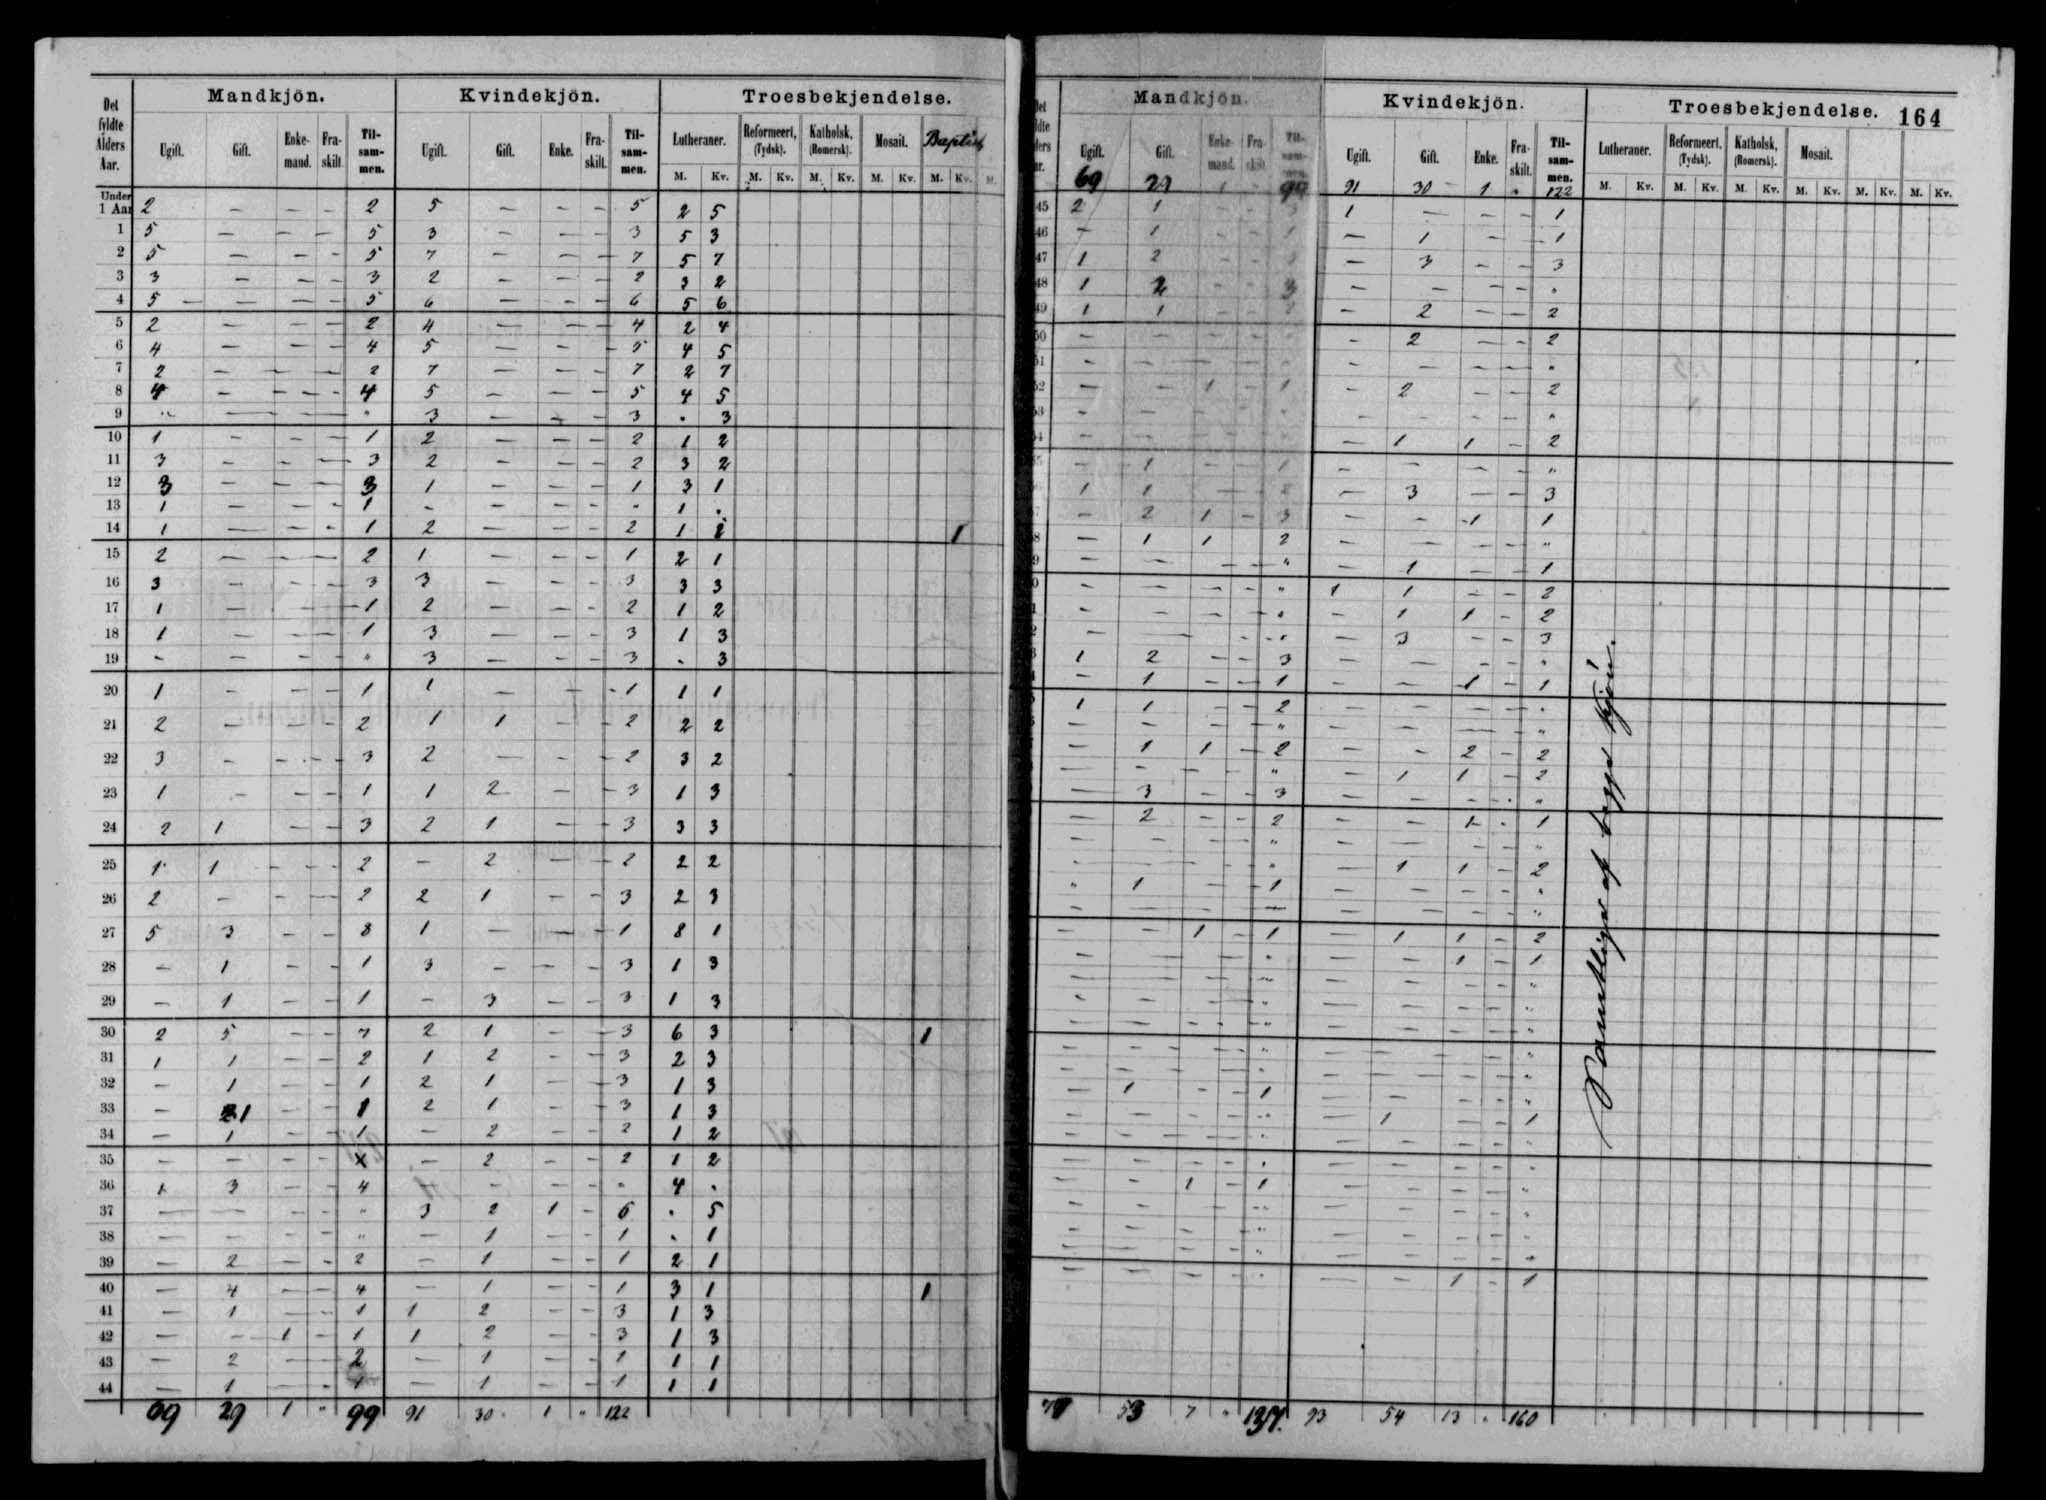 Mandkjön. Kvindekjön. Troesbekjendelse.
Det fyldte Alders Aar. Ugift. Gift. Enke-mand. Fra-skilt. Til-sam-men. Ugift. Gift. Enke. Fra-skilt. Til-sam-men. Lutheraner. Reformeert, (Tydsk). Katholsk, (Romersk). Mosait. Baptist
M. Kv. M. Kv. M. Kv. M. Kv. M. Kv. M.
Under 1 Aar 2 — — — 2 5 — — — 5 2 5
1 5 — — — 5 3 — — — 3 5 3
2 5 — — — 5 7 — — — 7 5 7
3 3 — — — 3 2 — — — 2 3 2
4 5 — — — 5 6 — — — 6 5 6
5 2 — — — 2 4 — — — 4 2 4
6 4 — — — 4 5 — — — 5 4 5
7 2 — — — 2 7 — — — 7 2 7
8 4 — — — 4 5 — — — 5 4 5
9 " — — — " 3 — — — 3 " 3
10 1 — — — 1 2 — — — 2 1 2
11 3 — — — 3 2 — — — 2 3 2
12 3 — — — 3 1 — — — 1 3 1
13 1 — — — 1 — — — — " 1 "
14 1 — — — 1 2 — — — 2 1 2 1
15 2 — — — 2 1 — — — 1 2 1
16 3 — — — 3 3 — — — 3 3 3
17 1 — — — 1 2 — — — 2 1 2
18 1 — — — 1 3 — — — 3 1 3
19 — — — — " 3 — — — 3 " 3
20 1 — — — 1 1 — — — 1 1 1
21 2 — — — 2 1 1 — — 2 2 2
22 3 — — — 3 2 — — — 2 3 2
23 1 — — — 1 1 2 — — 3 1 3
24 2 1 — — 3 2 1 — — 3 3 3
25 1 1 — — 2 — 2 — — 2 2 2
26 2 — — — 2 2 1 — — 3 2 3
27 5 3 — — 8 1 — — — 1 8 1
28 — 1 — — 1 3 — — — 3 1 3
29 — 1 — — 1 — 3 — — 3 1 3
30 2 5 — — 7 2 1 — — 3 6 3 1
31 1 1 — — 2 1 2 — — 3 2 3
32 — 1 — — 1 2 1 — — 3 1 3
33 — 1 — — 1 2 1 — — 3 1 3
34 — 1 — — 1 — 2 — — 2 1 2
35 — — — — — 2 — — 2 1 2
36 1 3 — — 4 — — — " 4 "
37 — — — — " 3 2 1 — 6 " 5
38 — — — — " — 1 — — 1 " 1
39 — 2 — — 2 — 1 — — 1 2 1
40 — 4 — — 4 — 1 — — 1 3 1 1
41 — 1 — — 1 1 2 — — 3 1 3
42 — — 1 — 1 1 2 — — 3 1 3
43 — 2 — — 2 — 1 — — 1 1 1
44 — 1 — — 1 — 1 — — 1 1 1
69 29 1 " 99 91 30 1 " 122
Mandkjön. Kvindekjön. Troesbekjendelse. 164
Ugift. Gift. Enke-mand. Fra-skilt. Til-sam-men. Ugift. Gift. Enke. Fra-skilt. Til-sam-men. Lutheraner. Reformeert, (Tydsk). Katholsk, (Romersk). Mosait.
M. Kv. M. Kv. M. Kv. M. Kv. M. Kv. M. Kv.
69 29 1 " 99 91 30 1 " 122
45 2 1 — — 3 1 — — — 1
46 — 1 — — 1 — 1 — — 1
47 1 2 — — 3 — 3 — — 3
48 1 2 — — 3 — — — — "
49 1 1 — — 2 — 2 — — 2
50 — — — — — 2 — — 2
51 — — — — — — — — "
52 — — 1 — 1 — 2 — — 2
53 — — — — — — — — "
54 — — — — — 1 1 — 2
— 1 — — 1 — — — — "
1 1 — — 2 — 3 — — 3
— 2 1 — 3 — — 1 1
— 1 1 2 — — — — "
— — — — " — 1 — — 1
— — — — " 1 1 — — 2
— — — — " — 1 1 — 2
— — — — " — 3 — — 3
1 2 — — 3 — — — — "
— 1 — — 1 — — 1 — 1
1 1 — — 2 — — — — "
— — — — " — — — — "
— 1 1 — 2 — — 2 — 2
— — — — " — 1 1 — 2
— 3 — — 3 — — — — "
— 2 — — 2 — — 1 — 1
— — — — " — — — — "
— — — — " — 1 1 — 2
" 1 — — 1 — — — — "
— — — — — — — — — "
— — 1 — 1 — 1 1 — 2
— — — — " — — 1 — 1
— — — — " — — — — "
— — — — " — — — — "
— — — — " — — — — "
— — — — " — — — — "
— — — — " — — — — "
— 1 — — 1 — — — — "
— — — — " — 1 — — 1
— — — — " — — — — "
— — — — " — — — — "
— — 1 — 1 — — — — "
— — — — " — — — — "
— — — — " — — — — "
— — — — " — — — — "
— — — — " — — 1 — 1
53 7 " 93 54 13 " 160
Samtlige af begge Kjön.